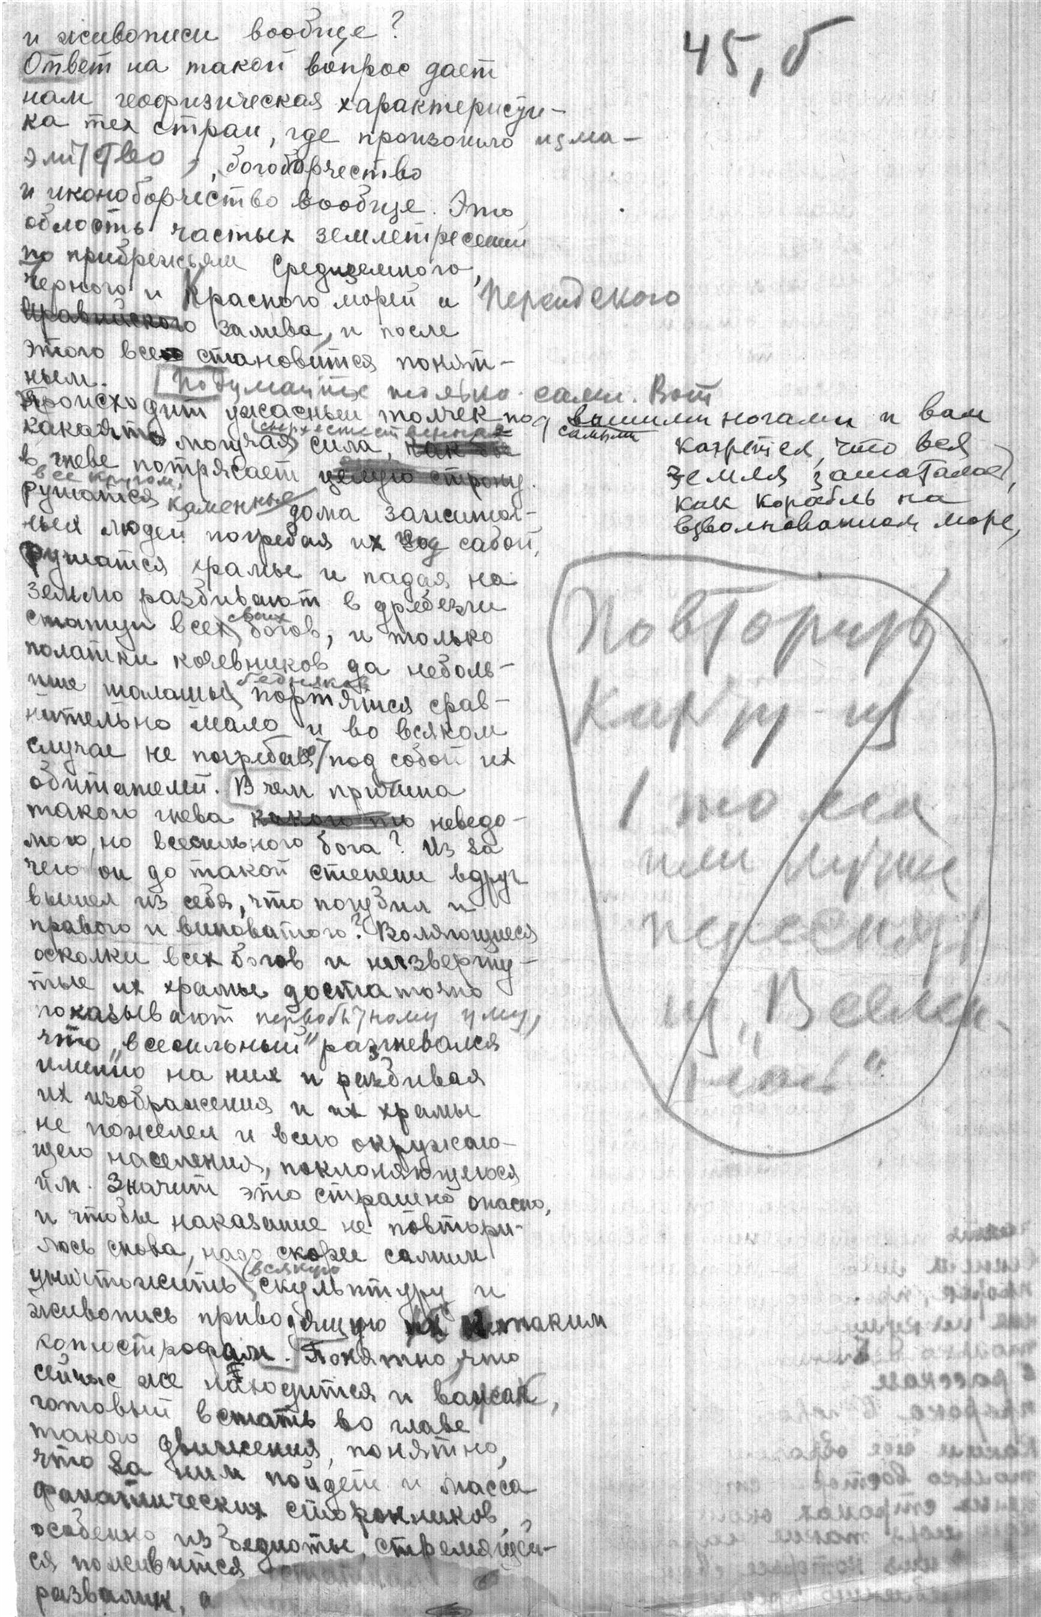 45, б
и живописи вообще?
Ответ на такой вопрос дает
нам геофизическая характеристи-
ка тех стран, где произошло изма-
элитство, богоборчество
и иконоборчество вообще. Это
область частых землетресений
по прибрежьям Средиземного,
Черного и Красного морей и Персидского
Аравийского залива, и после
этого все становится понят-
ным. Подумайте только сами. Вот
происходит ужасный толчек под вашими ногами и вам
самыми
кажется, что вся
земля зашаталась,
как корабль на
взволнованном море,
сверхестественная
какаято могучая сила,
в гневе потрясает целую страну.
все кругом,
рушатся каменные дома зажиточ-
ных людей погребая их под сабой,
рушатся храмы и падая на
землю разбивают в дребезги
статуи всех своих богов, и только
палатки кочевников да неболь-
шие шалаши бедняков портятся срав-
нительно мало и во всяком
случае не погребают под собой их
обитателей. В чем причина
такого гнева какого то неведо-
мого, но всесильного бога? Из за
чего он до такой степени вдруг
вышел из себя, что погубил и
правого и виноватого? Валяющиеся
осколки всех богов и низвергну-
тые их храмы достаточно
показывают первобытному уму,
что „всесильный" разгневался
именно на них и разбивая
их изображения и их храмы
не пожалел и всего окружаю-
щего населения, поклоняющегося
им. Значит это страшно опасно,
и чтобы наказание не повтори-
лось снова, надо скорее самим
уничтожить всякую скульптуру и
живопись приводящую к таким
катострофам. Понятно, что
сейчас же находится и вожак,
готовый встать во главе
такого движения, понятно,
что за ним пойдет и масса
фанатических сторонников
особенно из бедноты, стремящей-
ся поживится
развалин, а
Повторить
карту из
1 тома
или лучше
из „Вселен-